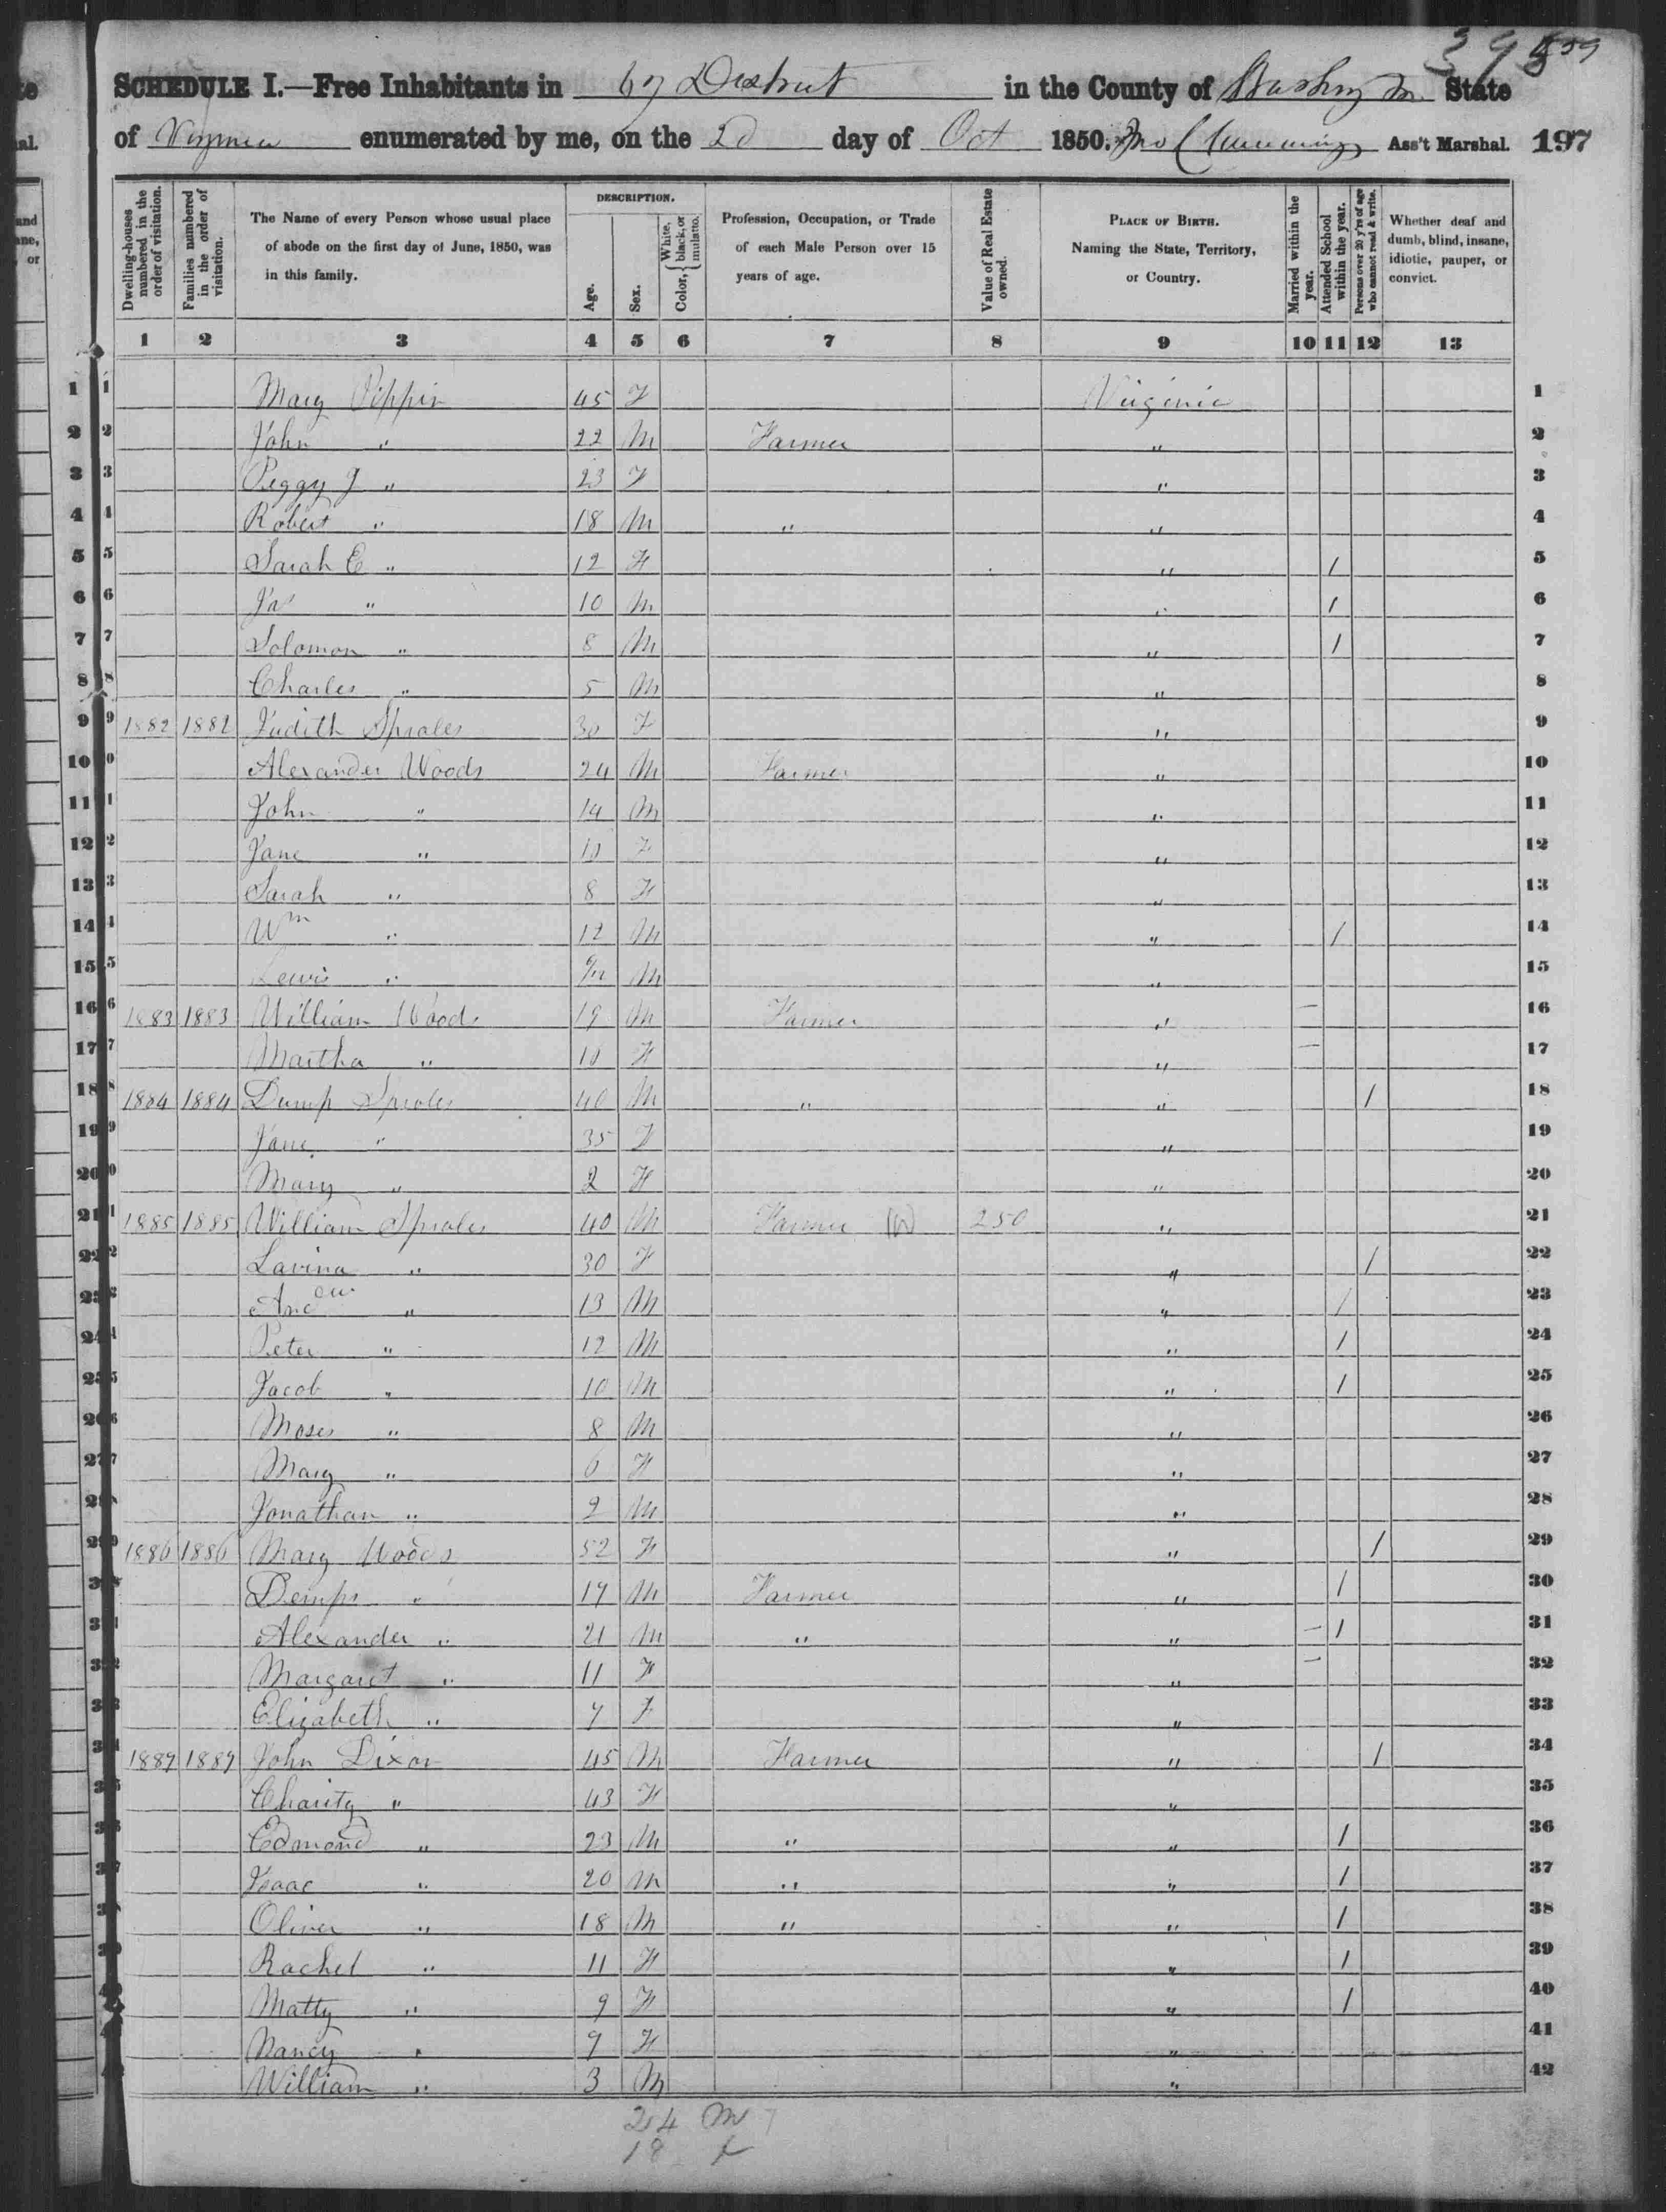 395 859
SCHEDULE I.—Free Inhabitants in 67 District in the County of Washington State
of Virginia enumerated by me, on the 2d day of Oct 1850. Jno C Cummings Ass't Marshal. 197
Dwelling-houses numbered in the order of visitation.
Families numbered in the order of visitation.
The Name of every Person whose usual place of abode on the first day of June, 1850, was in this family.
DESCRIPTION.
Age.
Sex.
Color, { White, black, or mulatto.
Profession, Occupation, or Trade of each Male Person over 15 years of age.
Value of Real Estate owned.
PLACE OF BIRTH. Naming the State, Territory, or Country.
Married within the year.
Attended School within the year.
Persons over 20 y'rs of age who cannot read & write.
Whether deaf and dumb, blind, insane, idiotic, pauper, or convict.
1 2 3 4 5 6 7 8 9 10 11 12 13
1 Mary Pippin 45 F Virginia 1
2 John " 22 M Farmer " 2
3 Peggy J " 23 F " 3
4 Robert " 18 M " " 4
5 Sarah E " 12 F " / 5
6 Jas " 10 M " / 6
7 Solomon " 8 M " / 7
8 Charles " 5 M " 8
9 1882 1882 Judith Sproles 30 F " 9
10 Alexander Woods 24 M Farmer " 10
11 John " 14 M " 11
12 Jane " 10 F " 12
13 Sarah " 8 F " 13
14 Wm " 12 M " / 14
15 Lewis " 9/12 M " 15
16 1883 1883 William Woods 19 M Farmer " — 16
17 Martha " F " — 17
18 1884 1884 Dump Sproles 40 M " " / 18
19 Jane " 35 F " 19
20 Mary " 2 F " 20
21 1885 1885 William Sproles 40 M Farmer (W) 250 " 21
22 Lavina " 30 F " / 22
23 Andew " 13 M " / 23
24 Peter " 12 M " / 24
25 Jacob " 10 M " / 25
26 Moses " 8 M " 26
27 Mary " 6 F " 27
28 Jonathan " 2 M " 28
29 1886 1886 Mary Woods 52 F " / 29
30 Demps " 17 M Farmer " / 30
31 Alexander " 21 M " " — / 31
32 Margaret " 11 F " — 32
33 Elizabeth " 7 F " 33
34 1887 1887 John Dixon 45 M Farmer " / 34
35 Charity " 43 F " 35
36 Edmond " 23 M " " / 36
37 Isaac " 20 M " " / 37
38 Oliver " 18 M " " / 38
39 Rachel " 11 F " / 39
40 Matty " 9 F " / 40
41 Nancy " 7 F " 41
42 William " 3 M " 42
24 M
18 f